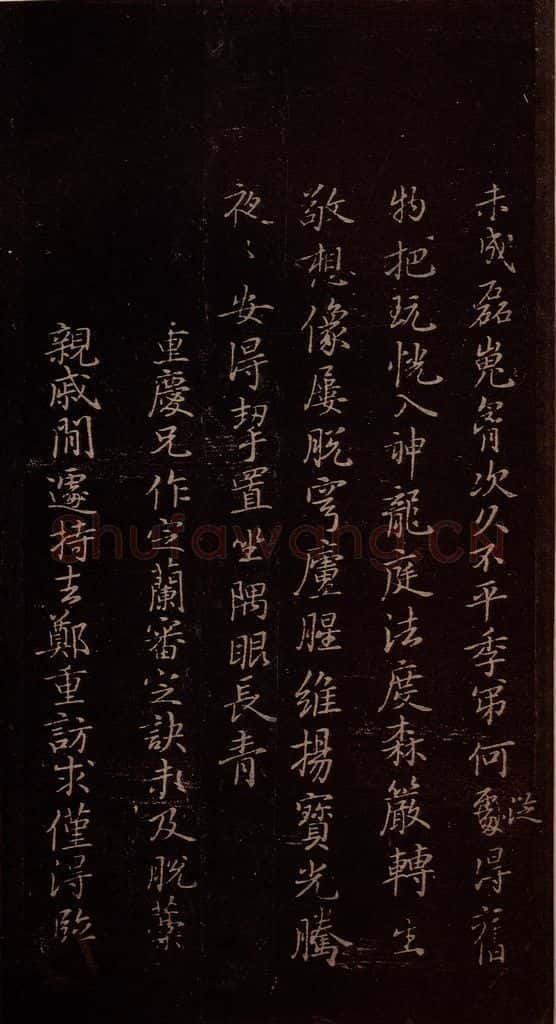 未成磊嵬胷次久不平季弟何處得舊
從
物把玩恍入神龍庭法度森嚴轉生
敬想像屢脫穹廬腥維揚寶光騰
夜〻安得挈置坐隅眼長青
重慶兄作定蘭審定訣未及脫藁
親戚間遽持去鄭重訪求僅得臨
shufawang.cn